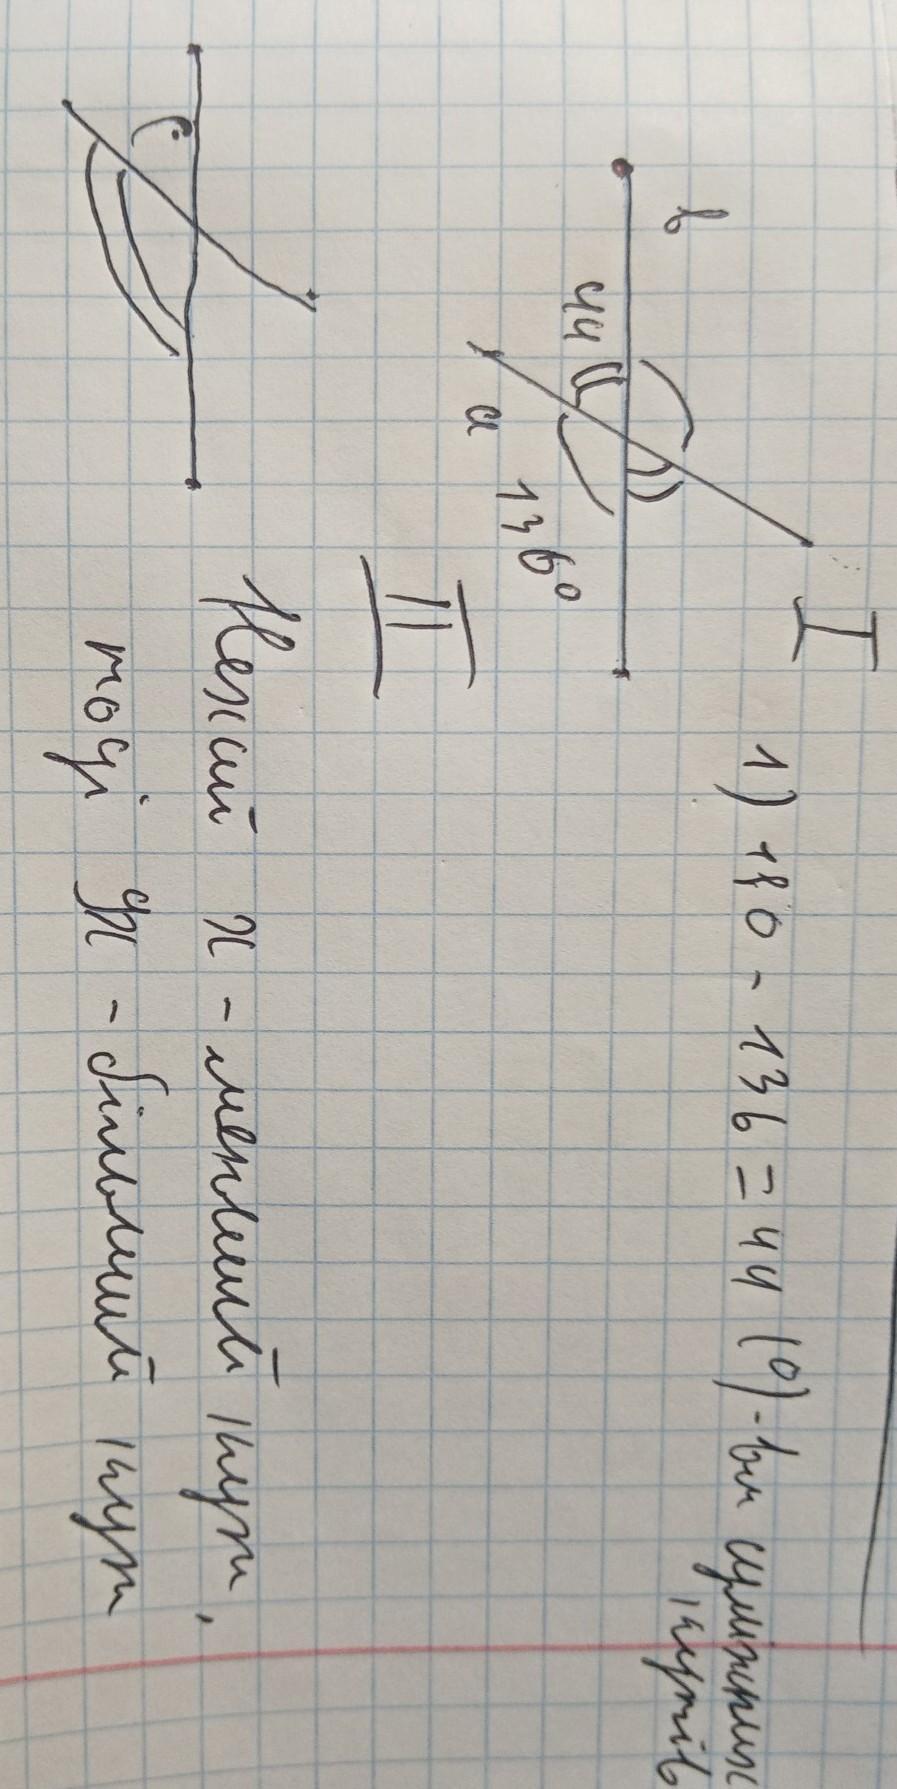 I
b
44
a
136°
1) 180 - 136 = 44 (°) - вл суміжних
кутів
II
Нехай x - менший кут,
тоді 9x - більший кут